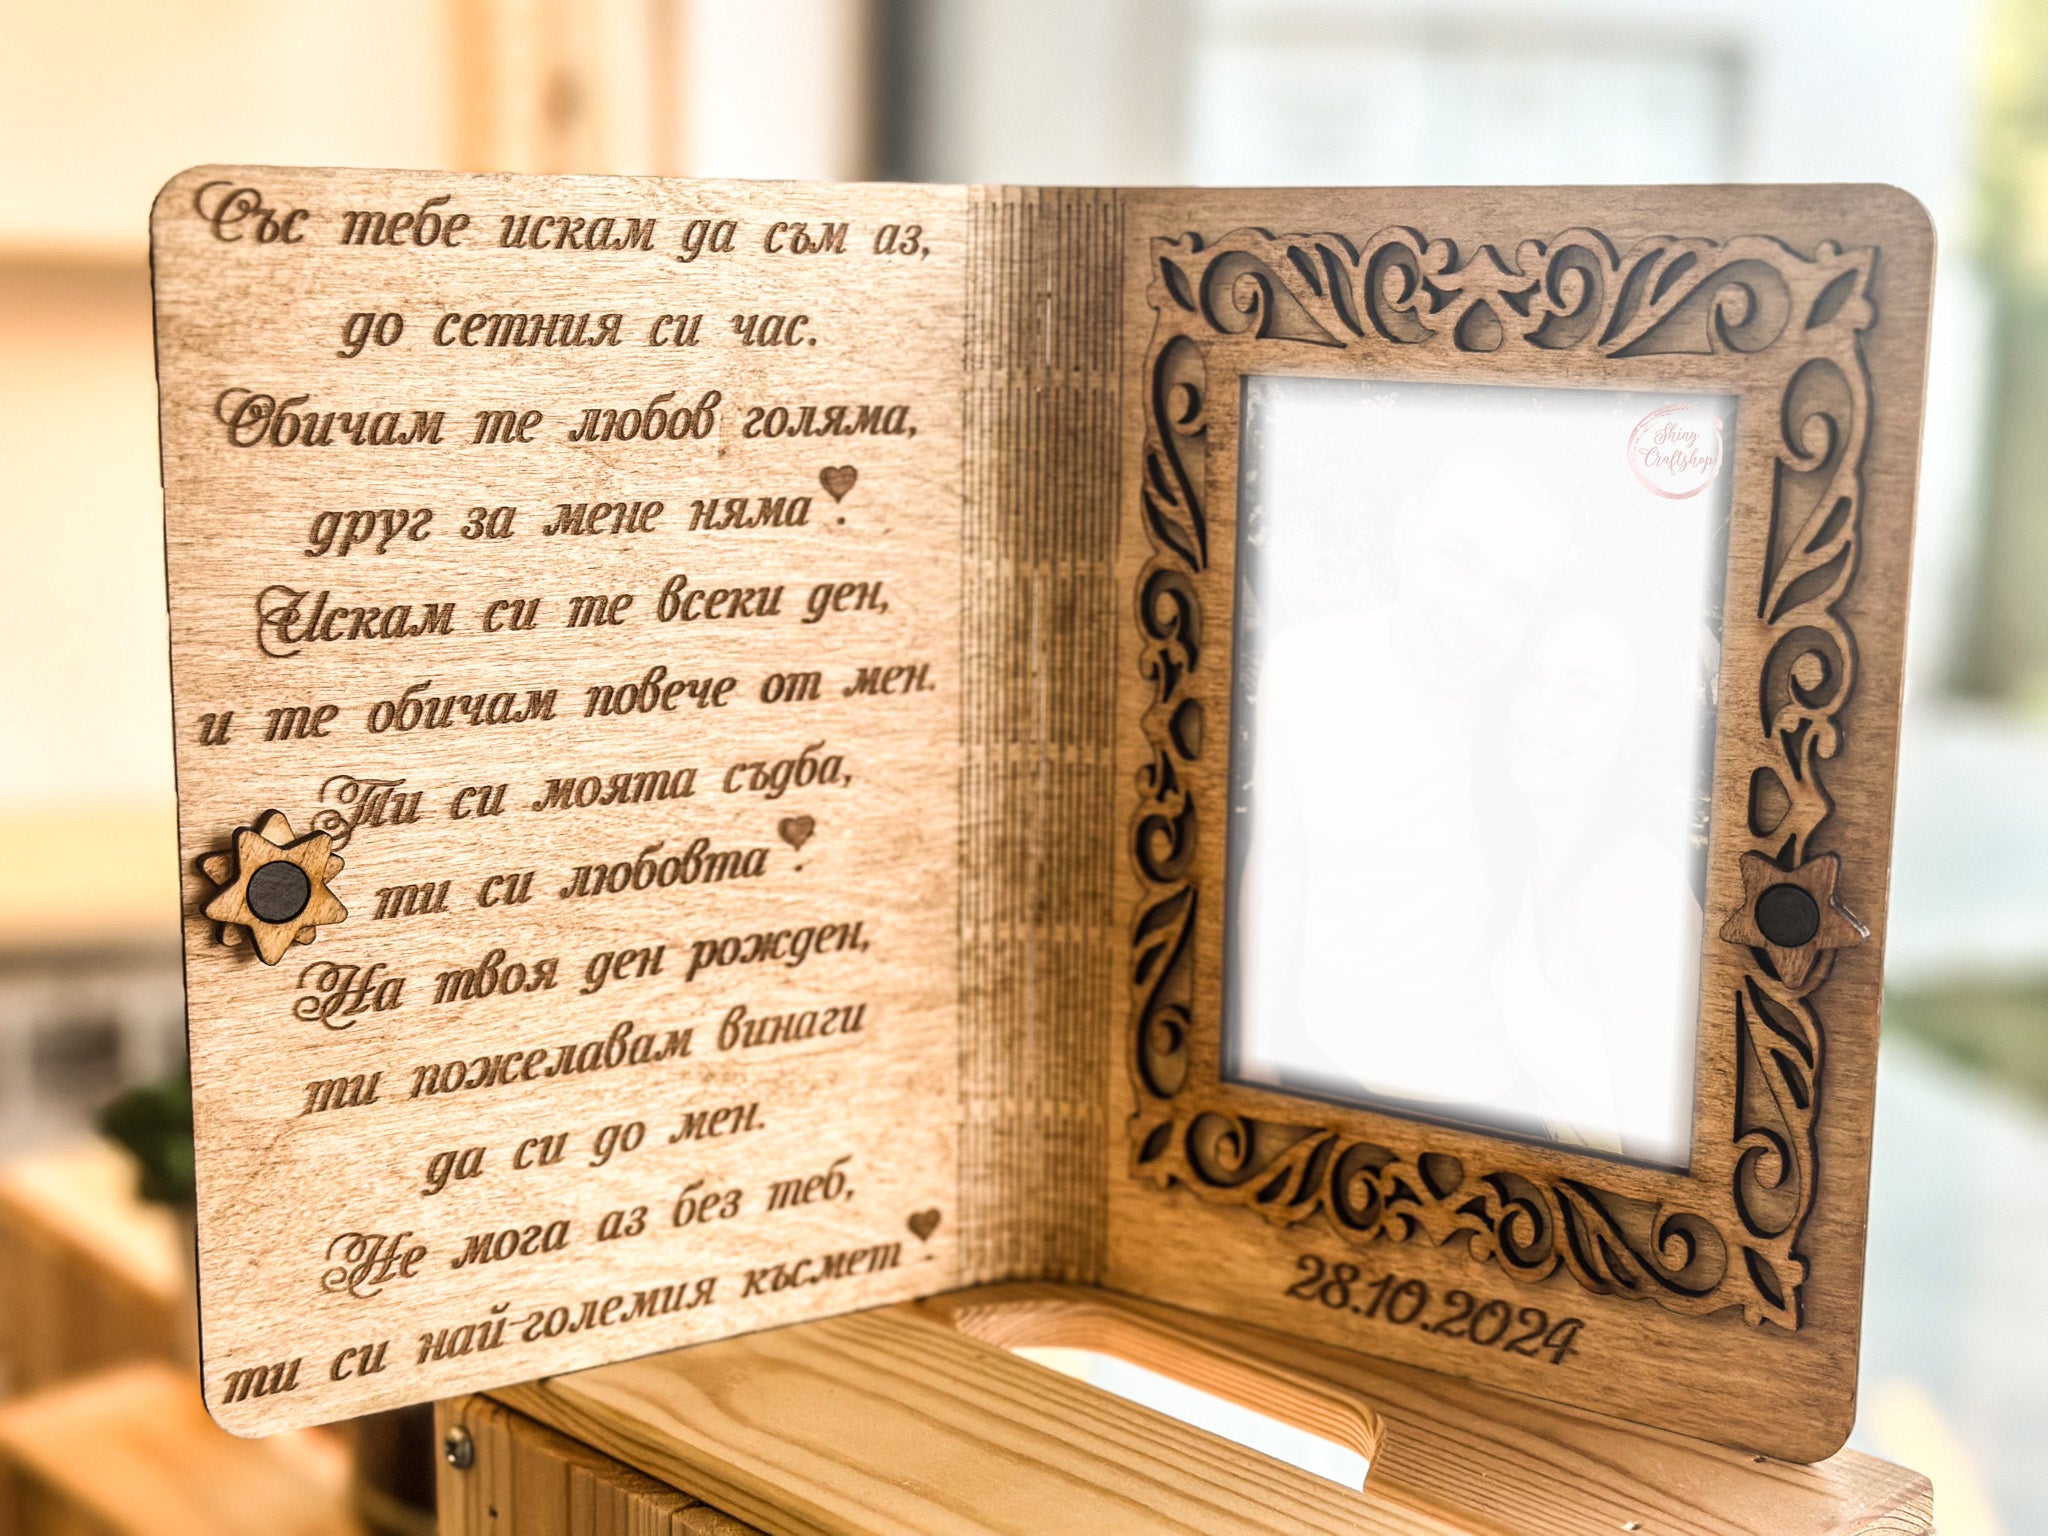 Със тебе искам да съм аз,
до сетния си час.
Обичам те любов голяма,
друг за мене няма.
Искам си те всеки ден,
и те обичам повече от мен.
Ти си моята съдба,
ти си любовта.
На твоя ден рожден,
ти пожелавам винаги
да си до мен.
Не мога аз без теб,
ти си най-големия късмет.
Shiny
Craftshop
28.10.2024